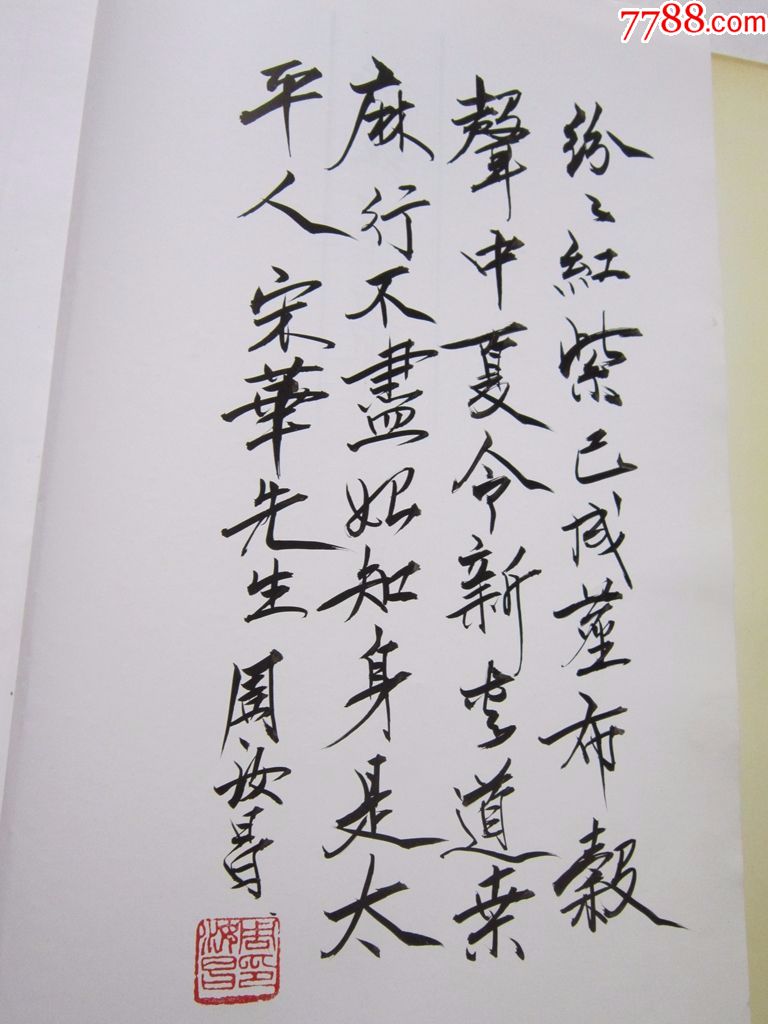 紛々紅紫已成塵布穀
聲中夏令新夾道桑
麻行不盡始知身是太
平人 宋華先生 周汝昌
周印汝昌
7788.com